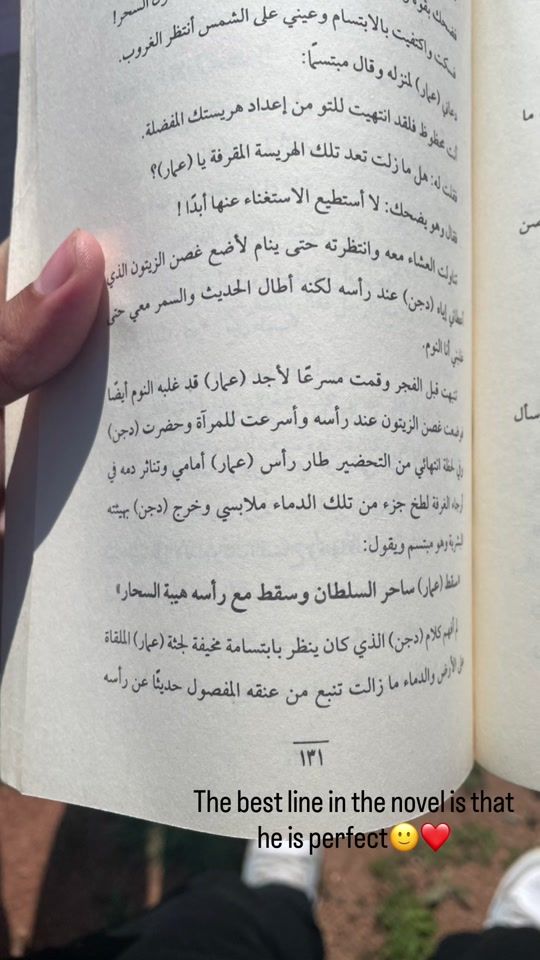 فضحك بقوة
فسكت واكتفيت بالابتسام وعيني على الشمس أنتظر الغروب.
دعاني (عمار) لمنزله وقال مبتسمًا:
أنت محظوظ فلقد انتهيت للتو من إعداد هريستك المفضلة.
فقلت له: هل ما زلت تعد تلك الهريسة المقرفة يا (عمار)؟
فقال وهو يضحك: لا أستطيع الاستغناء عنها أبدًا !
تناولت العشاء معه وانتظرته حتى ينام لأضع غصن الزيتون الذي
أعطاني إياه (دجن) عند رأسه لكنه أطال الحديث والسمر معي حتى
غلبني أنا النوم.
تنبهت قبل الفجر وقمت مسرعًا لأجد (عمار) قد غلبه النوم أيضًا
فوضعت غصن الزيتون عند رأسه وأسرعت للمرآة وحضرت (دجن)
وفي لحظة انتهائي من التحضير طار رأس (عمار) أمامي وتناثر دمه في
أرجاء الغرفة لطخ جزء من تلك الدماء ملابسي وخرج (دجن) بهيئته
البشرية وهو مبتسم ويقول:
"سقط (عمار) ساحر السلطان وسقط مع رأسه هيبة السحار"
لم أفهم كلام (دجن) الذي كان ينظر بابتسامة مخيفة لجثة (عمار) الملقاة
على الأرض والدماء ما زالت تنبع من عنقه المفصول حديثًا عن رأسه
١٣١
ما
صن
سأل
The best line in the novel is that
he is perfect🙂❤️